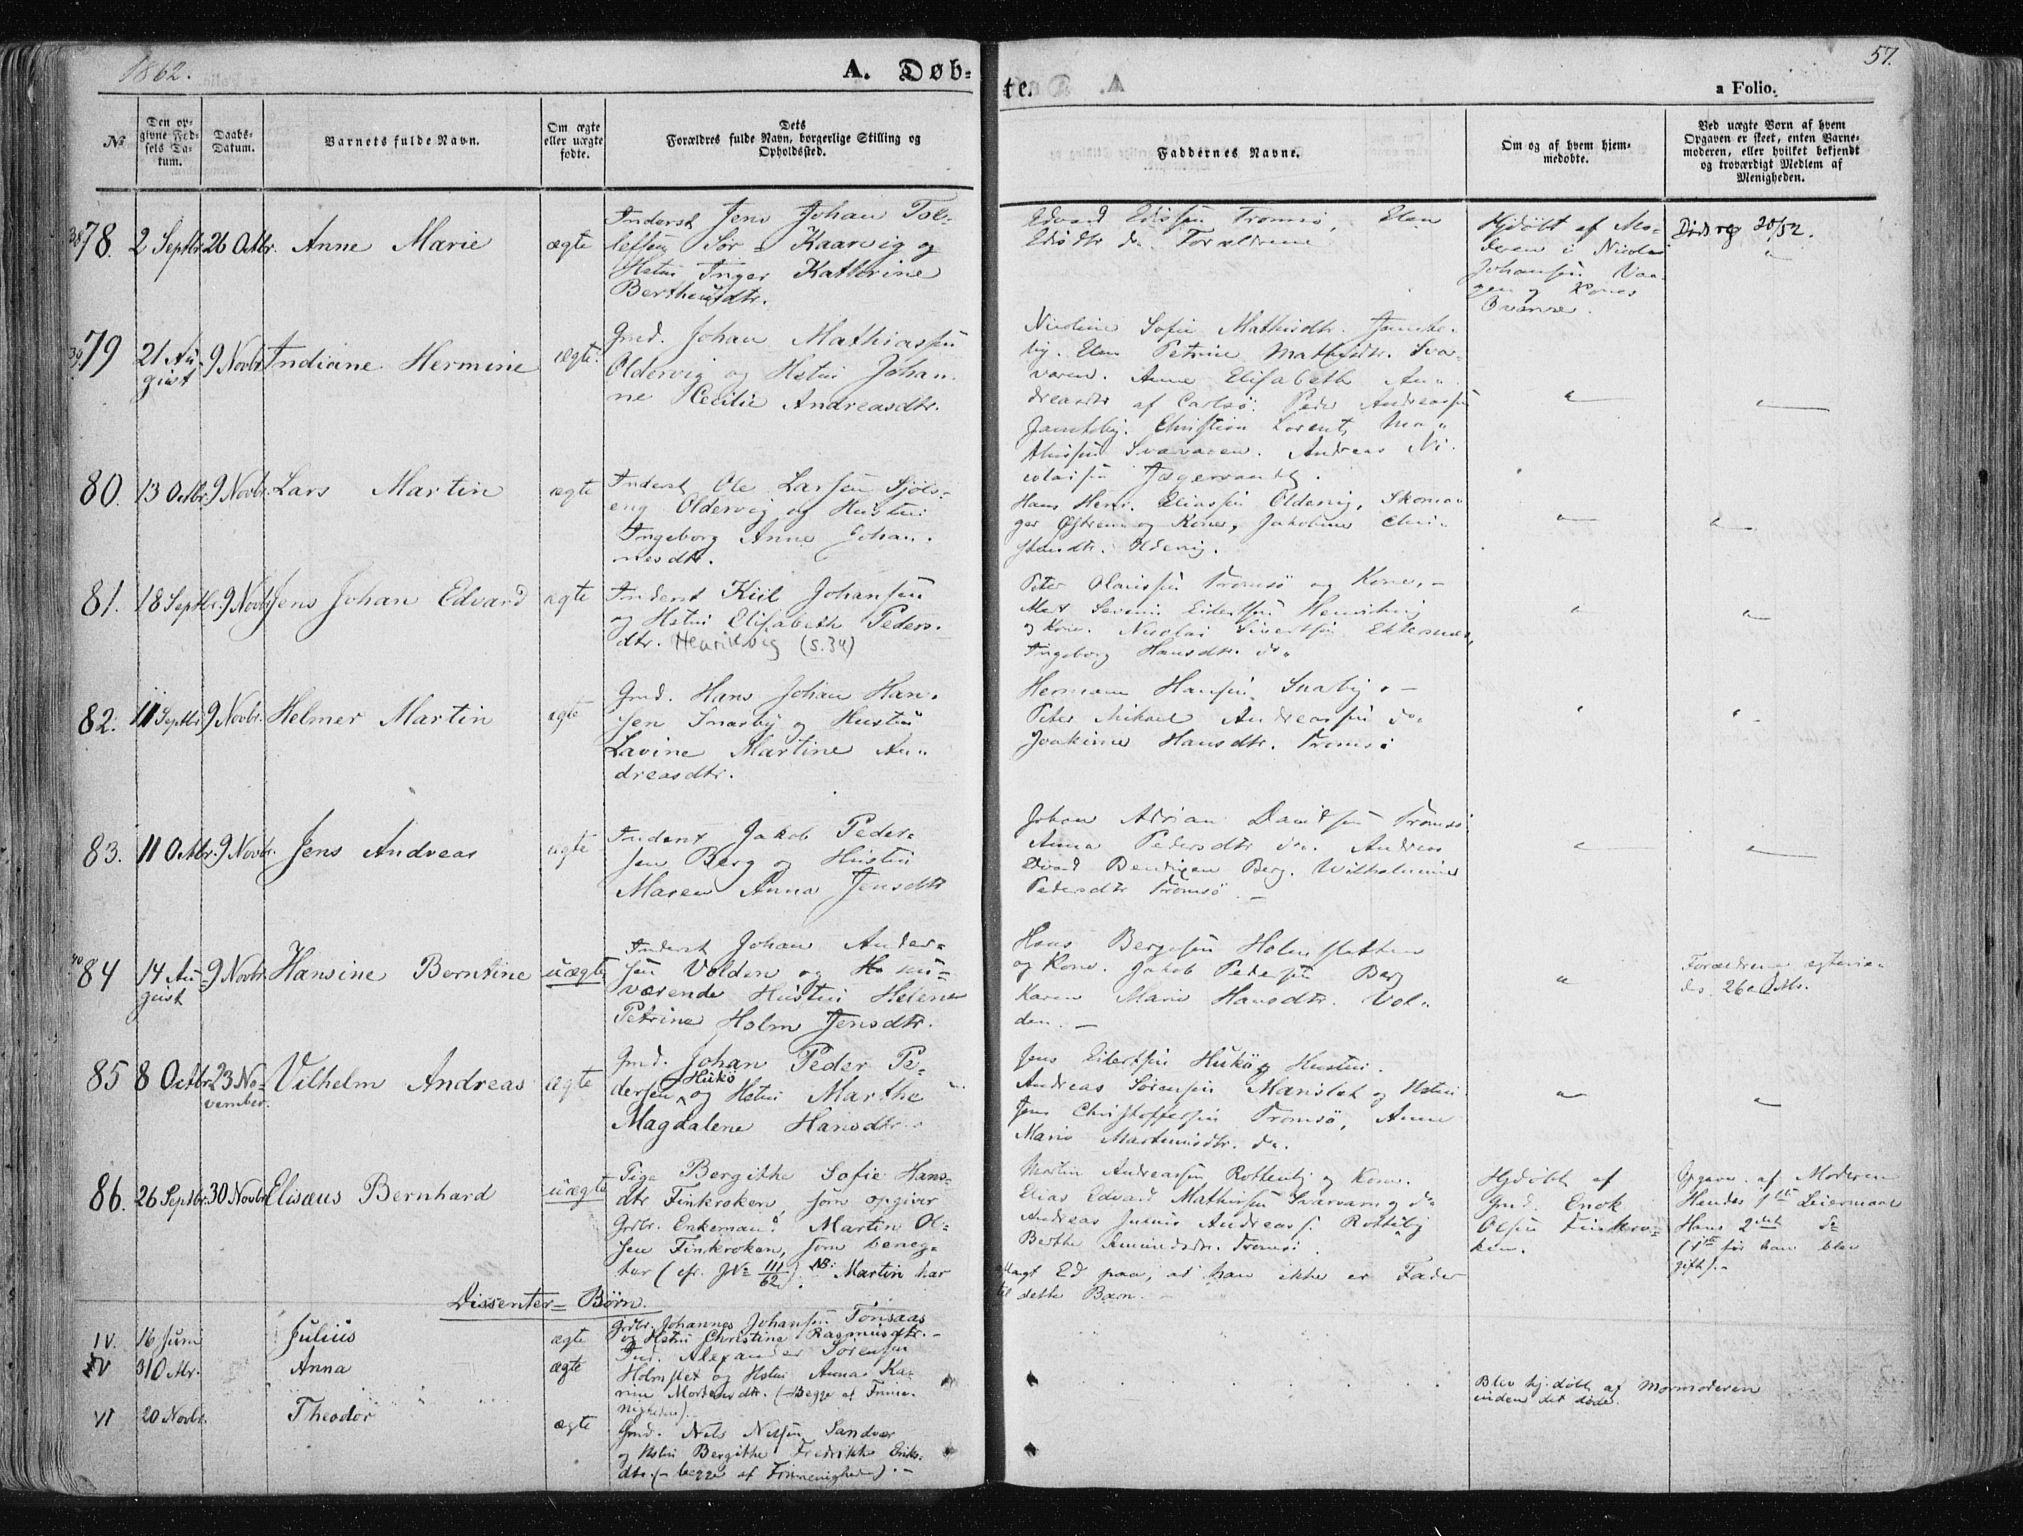 1862.
A. Døb-
te.
57.
a Folio.
№
Den op-
givne Fød-
sels Da-
tum.
Daabs-
Datum.
Barnets fulde Navn.
Om ægte
eller uægte
fødte.
Dets
Forældres fulde Navn, borgerlige Stilling og
Opholdssted.
Faddernes Navne.
Om og af hvem hjem-
medøbte.
Ved uægte Børn af hvem
Opgaven er skeet, enten Barne-
moderen, eller hvilket bekjendt
og troværdigt Medlem af
Menigheden.
38 78. 2 Septbr. 26 Octbr. Anne Marie ægte
Inderst Jens Johan Tol-
lefsen Sør-Kaarvig og
Hstru Inger Kathrine
Bertheusdtr.
Edvard Tromsø, Elen
do. Forældrene
Hjdøbt af Mo-
deren i Nicolai
Johansen Vaa-
gen og Kones
Dødsreg 20/52.
39 79 21 Au-
gust 9 Novbr. Indiane Hermine ægte.
Gmd. Johan Mathiassen
Oldervig og Hstru Johan-
ne Cecilie Andreasdtr.
Nicoline Sofie Mathisdtr. Jamte-
by. Elen Petrine Mathisdtr. Sva-
varen. Anne Elisabeth An-
dreasdtr af Carlsø. Peder Andreassen
Jamteby. Christian Lorentz Ma-
thisen Svavaren. Andreas Ni-
colaisen Jægervandt.
80. 13 Octbr. 9 Novbr. Lars Martin ægte
Inderst Ole Larsen Sjøls-
eng Oldervig og Hustru
Ingeborg Anne Johan-
nesdtr.
Hans Henr. Eliassen Oldervig, Skoma-
ger Østrem og Kone, Jakobine Chri-
stiandtr. Oldervig.
81. 18 Septbr. 9 Novbr. Jens Johan Edvard ægte
Inderst Kiil Johansen
og Hstru Elisabeth Peders-
dtr. Henrikvig (s.34)
Peter Olaussen Tromsø og Kone,
Mat Severin Eidertsen Henrikvig
og Kone. Nicolai Sivertsen
Ingeborg Hansdtr. do.
82. 11 Septbr. 9 Novbr. Helmer Martin ægte
Gmd. Hans Johan Han-
sen Snarby og Hustru
Lavine Martine An-
dreasdtr.
Hermann Hansen Snarby.
Peter Mikael Andreassen do.
Joakime Hansdtr. Tromsø
83. 11 Octbr. 9 Novbr. Jens Andreas ægte
Inderst Jakob Peder-
sen Berg og Hustru
Maren Anna Jensdtr
Johan Adrian Davidsen Tromsø
Anna Pedersdtr do. Andreas
Edvard Bendixen Berg. Wilhelmine
Pedersdtr Tromsø.
40 84 14 Au-
gust 9 Novbr. Hansine Berntine uægte
Inderst Johan Ander-
sen Volden og Ha nu-
værende Hustru Helene
Petrine Holm Jensdtr.
Hans Bergesen Holmslatten
og Kone. Jakob Pedersen Berg
Karen Marie Hansdtr. Vol-
den.
Forældrene ægtevie-
des 26 Octbr.
85 8 Octbr. 23 No-
vember. Vilhelm Andreas ægte
Gmd. Johan Peder Pe-
dersen Hukø og Hstru Marthe
Magdalene Hansdtr.
Jens Eilertsen Hukø og Hustru.
Andreas Sørensen Manslet og Hstru
Jens Christoffersen Tromsø, Anne
Marie Martinusdtr. do.
86. 26 Septbr. 30 Novbr. Elisæus Bernhard uægte
Pige Bergithe Sofie Hans-
dtr Finkroken, som opgiver
Grdbr. Enkemand Martin Ol-
sen Finkroken, som beneg-
ter (cfr. JN. 111/62). NB. Martin har
Martin Andreassen Rotteneby og Kone.
Elias Edvard Mathissen Svarvaren og do
Andreas Julius Andreass. Rottesby
Berthe Amundsdtr. Tromsø.
aflagt Ed paa, at han ikke er Fader
til dette Barn.
Hjdøbt af
Gmd. Enok
Olsen Finkro-
ken.
Opgaven af Moderen
Hendes 1ste Leiermaal
Hans 2det do
(1ste før han blev
gift).
Dissenter-Børn.
IV. 16 Juni Julius ægte
Grdbr. Johannes Johansen Tønsaas
og Hstru Christine Rasmusdtr.
V 31 Octbr. Anna ægte
Ind. Alexander Sørensen
Holmslet og Hstru Anna Ka-
rine Mortensdtr. (Begge af Frime-
nigheden).
Blev hj.døbt af Mormoderen
inden det døde.
VI 20 Novbr. Theodor ægte
Gmd. Nels Nelsen Sandvær
og Hstru Bergithe Fredrikke Eriks-
dtr. (begge af Frimenigheden).